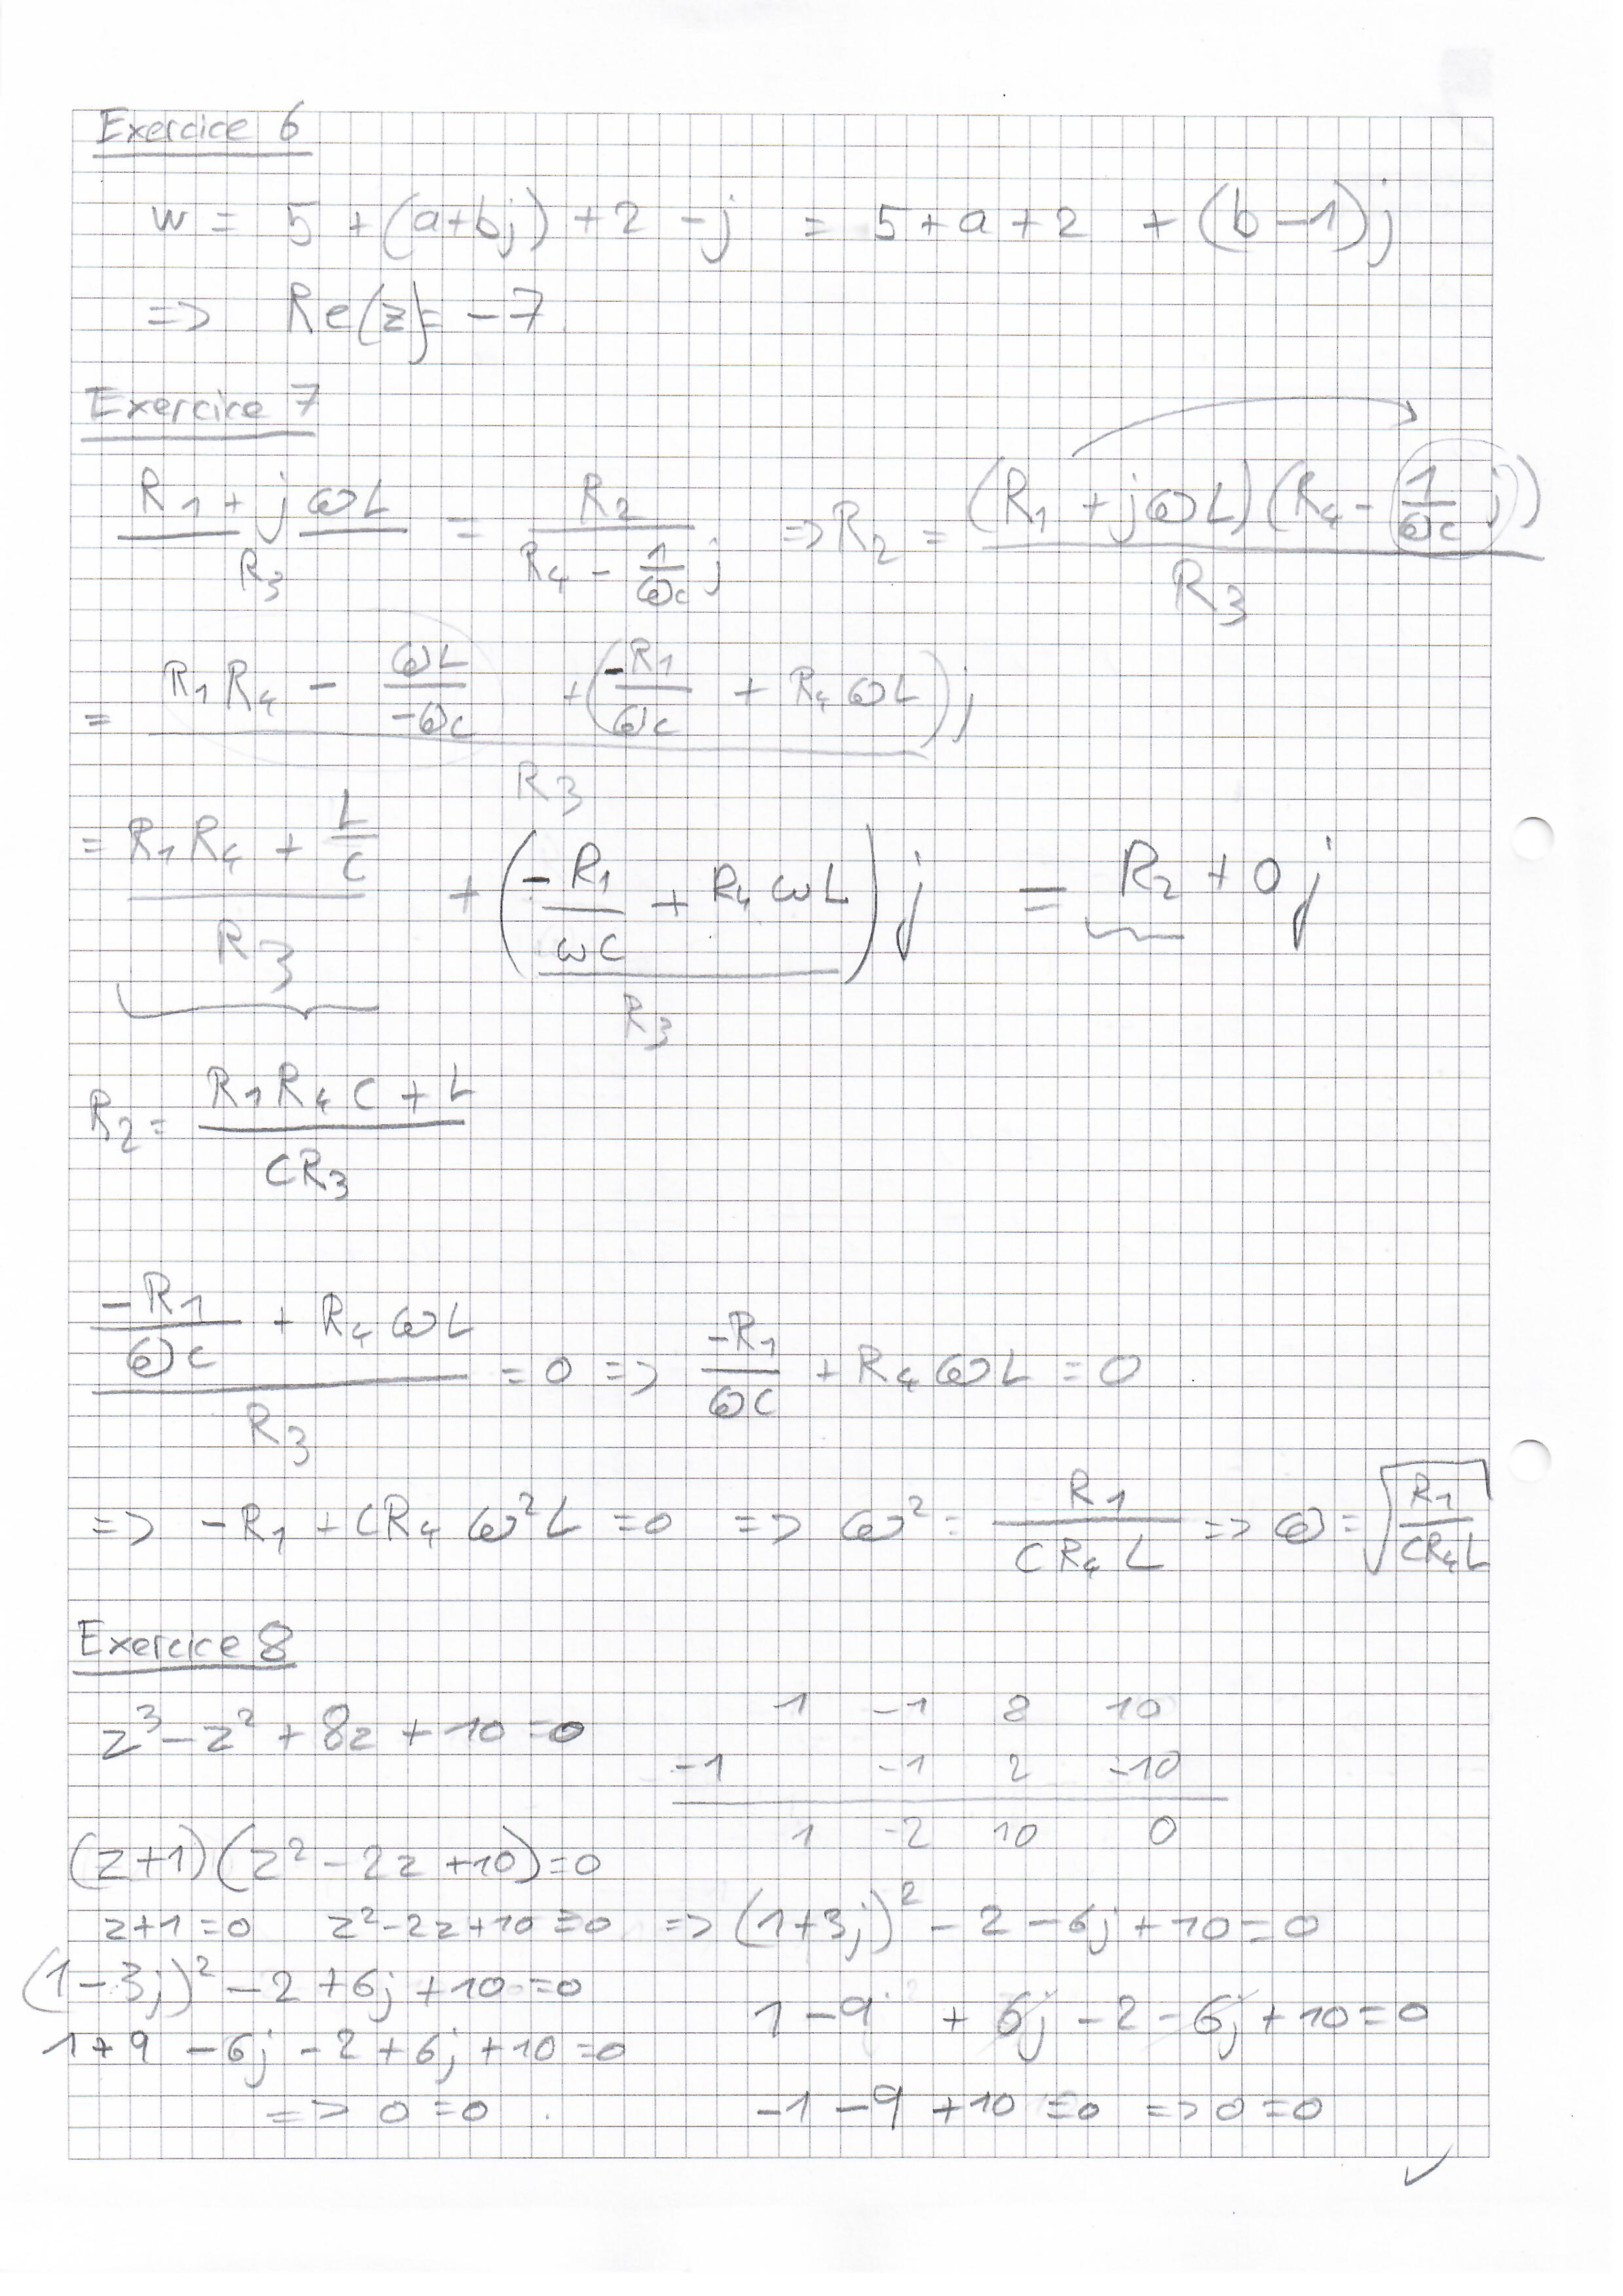 Exercice 6
w = 5 + (a+bj) + 2 - j = 5 + a + 2 + (b - 1)j
=> Re(z) = -7.
Exercice 7
(R1 + jωL)/R3 = R2/(R4 - (1/ωc)j) => R2 = ((R1 + jωL)(R4 - (1/ωc)j))/R3
= (R1R4 - ωL/(-ωc) + (-R1/ωc + R4ωL)j)/R3
= (R1R4 + L/c)/R3 + ((-R1/ωC + R4ωL)/R3)j = R2 + 0j
R2 = (R1R4C + L)/(CR3)
(-R1/ωc + R4ωL)/R3 = 0 => -R1/ωC + R4ωL = 0
=> -R1 + CR4ω²L = 0 => ω² = R1/(CR4L) => ω = √(R1/(CR4L))
Exercice 8
z³ - z² + 8z + 10 = 0
1 -1 8 10
-1 -1 2 -10
1 -2 10 0
(z+1)(z² - 2z + 10) = 0
z+1 = 0 z² - 2z + 10 = 0 => (1+3j)² - 2 - 6j + 10 = 0
(1-3j)² - 2 + 6j + 10 = 0
1 - 9 + 6j - 2 - 6j + 10 = 0
1 + 9 - 6j - 2 + 6j + 10 = 0
=> 0 = 0
-1 - 9 + 10 = 0 => 0 = 0